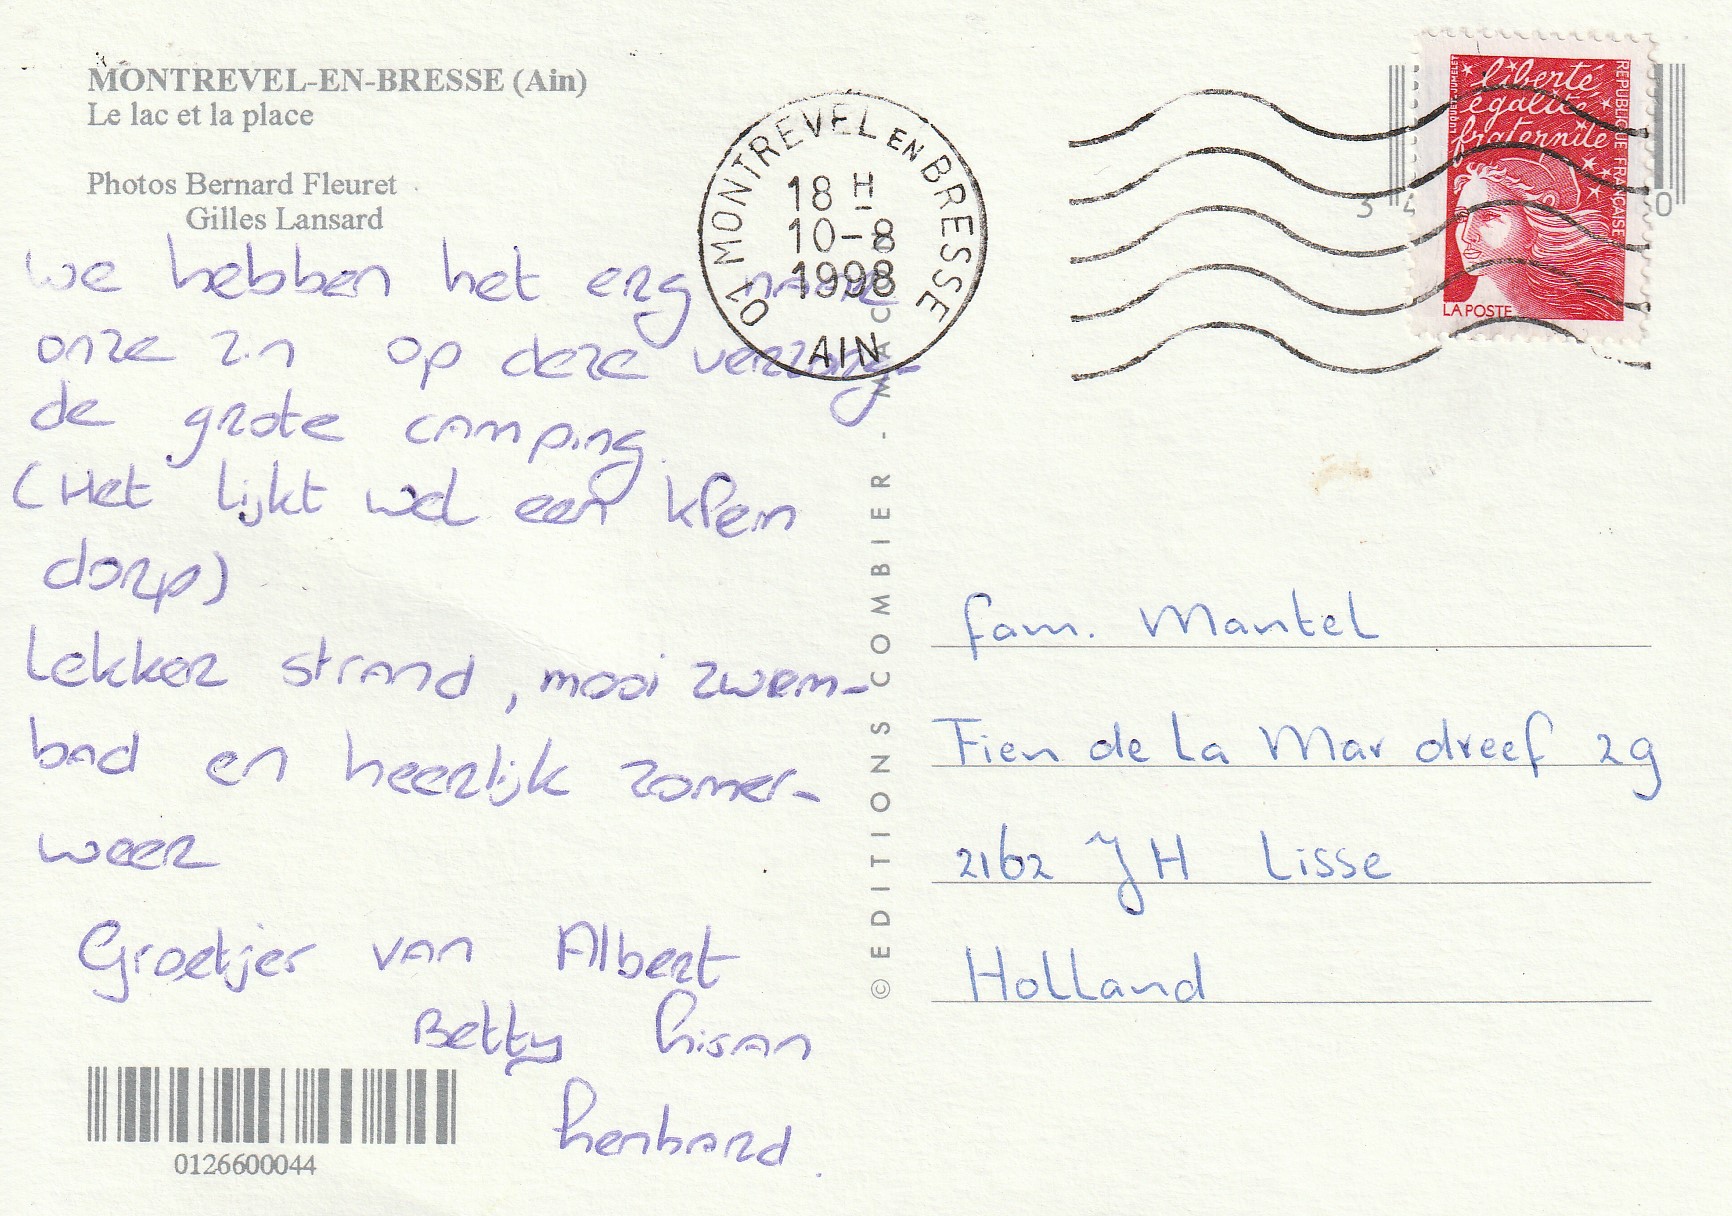 MONTREVEL-EN-BRESSE (Ain)
Le lac et la place
Photos Bernard Fleuret
Gilles Lansard
We hebben het erg naar
onze zin op deze verzorg-
de grote camping.
(Het lijkt wel een klein
dorp)
Lekker strand, mooi zwem-
bad en heerlijk zomer-
weer
Groetjes van Albert
Betty
0126600044
© EDITIONS COMBIER - MACON
01 MONTREVEL EN BRESSE
18 H
10-8
1998
AIN
liberté
égalité
fraternité
REPUBLIQUE FRANÇAISE
LA POSTE
fam. Mantel
Fien de la Mar dreef 29
2162 JH Lisse
Holland